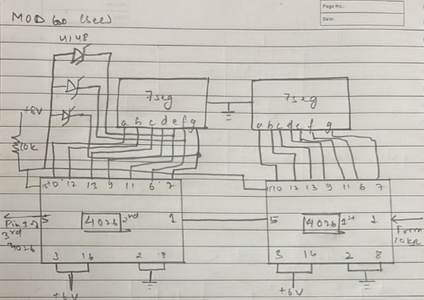 Page No.:
Date:
MOD 60 (sec)
4148
+6V
10k
7seg
7seg
a b c d e f g
a b c d e f g
15 10 12 13 9 11 6 7
15 10 12 13 9 11 6 7
5
4026 2nd
1
5
4026 1st
1
Pin 1 of
3rd
4026
From
10kΩ
3 16 2 8
3 16 2 8
+6V
+6V